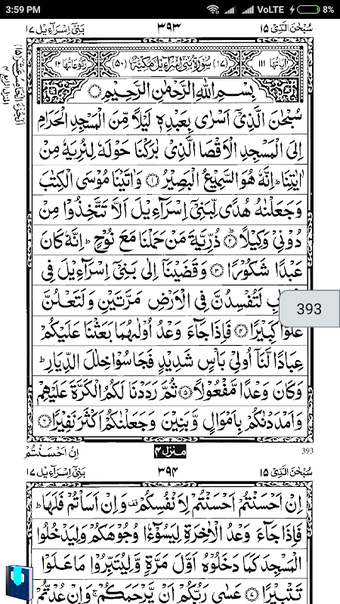 3:59 PM VoLTE 8%
سُبْحٰنَ الَّذِیْۤ ۱۵ ۳۹۳ بَنِیْۤ اِسْرَآءِیْل ۱۷
بِسْمِ اللّٰهِ الرَّحْمٰنِ الرَّحِیْمِ
سُبْحٰنَ الَّذِیْۤ اَسْرٰی بِعَبْدِهٖ لَیْلًا مِّنَ الْمَسْجِدِ الْحَرَامِ
اِلَی الْمَسْجِدِ الْاَقْصَا الَّذِیْ بٰرَكْنَا حَوْلَهٗ لِنُرِیَهٗ مِنْ
اٰیٰتِنَا ؕ اِنَّهٗ هُوَ السَّمِیْعُ الْبَصِیْرُ ۝۱ وَ اٰتَیْنَا مُوْسَی الْكِتٰبَ
وَ جَعَلْنٰهُ هُدًی لِّبَنِیْۤ اِسْرَآءِیْلَ اَلَّا تَتَّخِذُوْا مِنْ
دُوْنِیْ وَكِیْلًا ۝۲ ذُرِّیَّةَ مَنْ حَمَلْنَا مَعَ نُوْحٍ ؕ اِنَّهٗ كَانَ
عَبْدًا شَكُوْرًا ۝۳ وَ قَضَیْنَاۤ اِلٰی بَنِیْۤ اِسْرَآءِیْلَ فِی
لَتُفْسِدُنَّ فِی الْاَرْضِ مَرَّتَیْنِ وَ لَتَعْلُنَّ
393
عُلُوًّا كَبِیْرًا ۝۴ فَاِذَا جَآءَ وَعْدُ اُوْلٰىهُمَا بَعَثْنَا عَلَیْكُمْ
عِبَادًا لَّنَاۤ اُولِیْ بَاْسٍ شَدِیْدٍ فَجَاسُوْا خِلٰلَ الدِّیَارِ ؕ
وَ كَانَ وَعْدًا مَّفْعُوْلًا ۝۵ ثُمَّ رَدَدْنَا لَكُمُ الْكَرَّةَ عَلَیْهِمْ
وَ اَمْدَدْنٰكُمْ بِاَمْوَالٍ وَّ بَنِیْنَ وَ جَعَلْنٰكُمْ اَكْثَرَ نَفِیْرًا ۝۶
393 منزل ۴ اِنْ اَحْسَنْتُمْ
سُبْحٰنَ الَّذِیْۤ ۱۵ ۳۹۴ بَنِیْۤ اِسْرَآءِیْل ۱۷
اِنْ اَحْسَنْتُمْ اَحْسَنْتُمْ لِاَنْفُسِكُمْ ۫ وَ اِنْ اَسَاْتُمْ فَلَهَا ؕ
فَاِذَا جَآءَ وَعْدُ الْاٰخِرَةِ لِیَسُوْٓءٗا وُجُوْهَكُمْ وَ لِیَدْخُلُوا
الْمَسْجِدَ كَمَا دَخَلُوْهُ اَوَّلَ مَرَّةٍ وَّ لِیُتَبِّرُوْا مَا عَلَوْا
تَتْبِیْرًا ۝۷ عَسٰی رَبُّكُمْ اَنْ یَّرْحَمَكُمْ ۚ وَ اِنْ عُدْتُّمْ